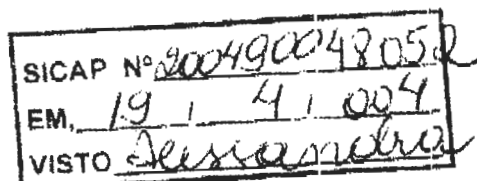 SICAP Nº 200490048052
EM, 19 / 4 / 004
VISTO Alessandra